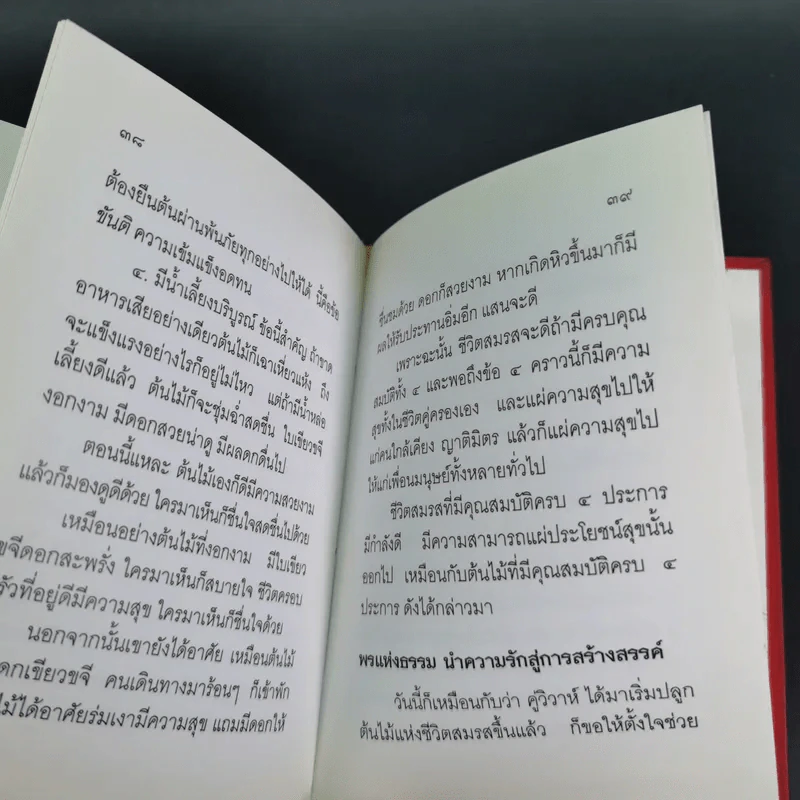 ๓๘
ต้องยืนต้นผ่านพ้นภัยทุกอย่างไปให้ได้ นี้คือข้อ
ขันติ ความเข้มแข็งอดทน
๔. มีน้ำเลี้ยงบริบูรณ์ ข้อนี้สำคัญ ถ้าขาด
อาหารเสียอย่างเดียวต้นไม้ก็เฉาเหี่ยวแห้ง ถึง
จะแข็งแรงอย่างไรก็อยู่ไม่ไหว แต่ถ้ามีน้ำหล่อ
เลี้ยงดีแล้ว ต้นไม้ก็จะชุ่มฉ่ำสดชื่น ใบเขียวขจี
งอกงาม มีดอกสวยน่าดู มีผลดกดื่นไป
ตอนนี้แหละ ต้นไม้เองก็ดีมีความสวยงาม
แล้วก็มองดูดีด้วย ใครมาเห็นก็ชื่นใจสดชื่นไปด้วย
เหมือนอย่างต้นไม้ที่งอกงาม มีใบเขียว
ขจีดอกสะพรั่ง ใครมาเห็นก็สบายใจ ชีวิตครอบ
รัวที่อยู่ดีมีความสุข ใครมาเห็นก็ชื่นใจด้วย
นอกจากนั้นเขายังได้อาศัย เหมือนต้นไม้
ดกเขียวขจี คนเดินทางมาร้อนๆ ก็เข้าพัก
ไม้ได้อาศัยร่มเงามีความสุข แถมมีดอกให้
๓๙
ชื่นชมด้วย ดอกก็สวยงาม หากเกิดหิวขึ้นมาก็มี
ผลให้รับประทานอิ่มอีก แสนจะดี
เพราะฉะนั้น ชีวิตสมรสจะดีถ้ามีครบคุณ
สมบัติทั้ง ๔ และพอถึงข้อ ๔ คราวนี้ก็มีความ
สุขทั้งในชีวิตคู่ครองเอง และแผ่ความสุขไปให้
แก่คนใกล้เคียง ญาติมิตร แล้วก็แผ่ความสุขไป
ให้แก่เพื่อนมนุษย์ทั้งหลายทั่วไป
ชีวิตสมรสที่มีคุณสมบัติครบ ๔ ประการ
มีกำลังดี มีความสามารถแผ่ประโยชน์สุขนั้น
ออกไป เหมือนกับต้นไม้ที่มีคุณสมบัติครบ ๔
ประการ ดังได้กล่าวมา
พรแห่งธรรม นำความรักสู่การสร้างสรรค์
วันนี้ก็เหมือนกับว่า คู่วิวาห์ ได้มาเริ่มปลูก
ต้นไม้แห่งชีวิตสมรสขึ้นแล้ว ก็ขอให้ตั้งใจช่วย